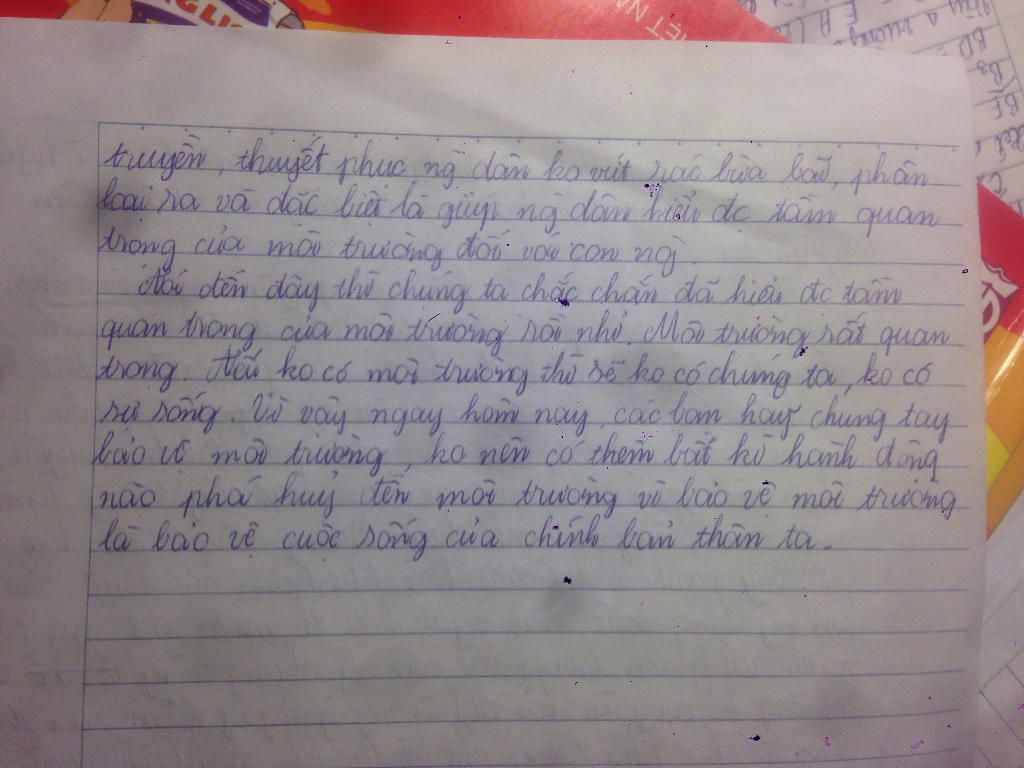 truyền, thuyết phục ng dân ko vứt rác bừa bãi, phân
loại ra và đặc biệt là giúp ng dân hiểu đc tầm quan
trọng của môi trường đối với con ng.
Nói đến đây thì chúng ta chắc chắn đã hiểu đc tầm
quan trọng của môi trường rồi nhỉ. Môi trường rất quan
trọng. Nếu ko có môi trường thì sẽ ko có chúng ta, ko có
sự sống. Vì vậy ngay hôm nay, các bạn hãy chung tay
bảo vệ môi trường, ko nên có thêm bất kì hành động
nào phá huỷ đến môi trường vì bảo vệ môi trường
là bảo vệ cuộc sống của chính bản thân ta.